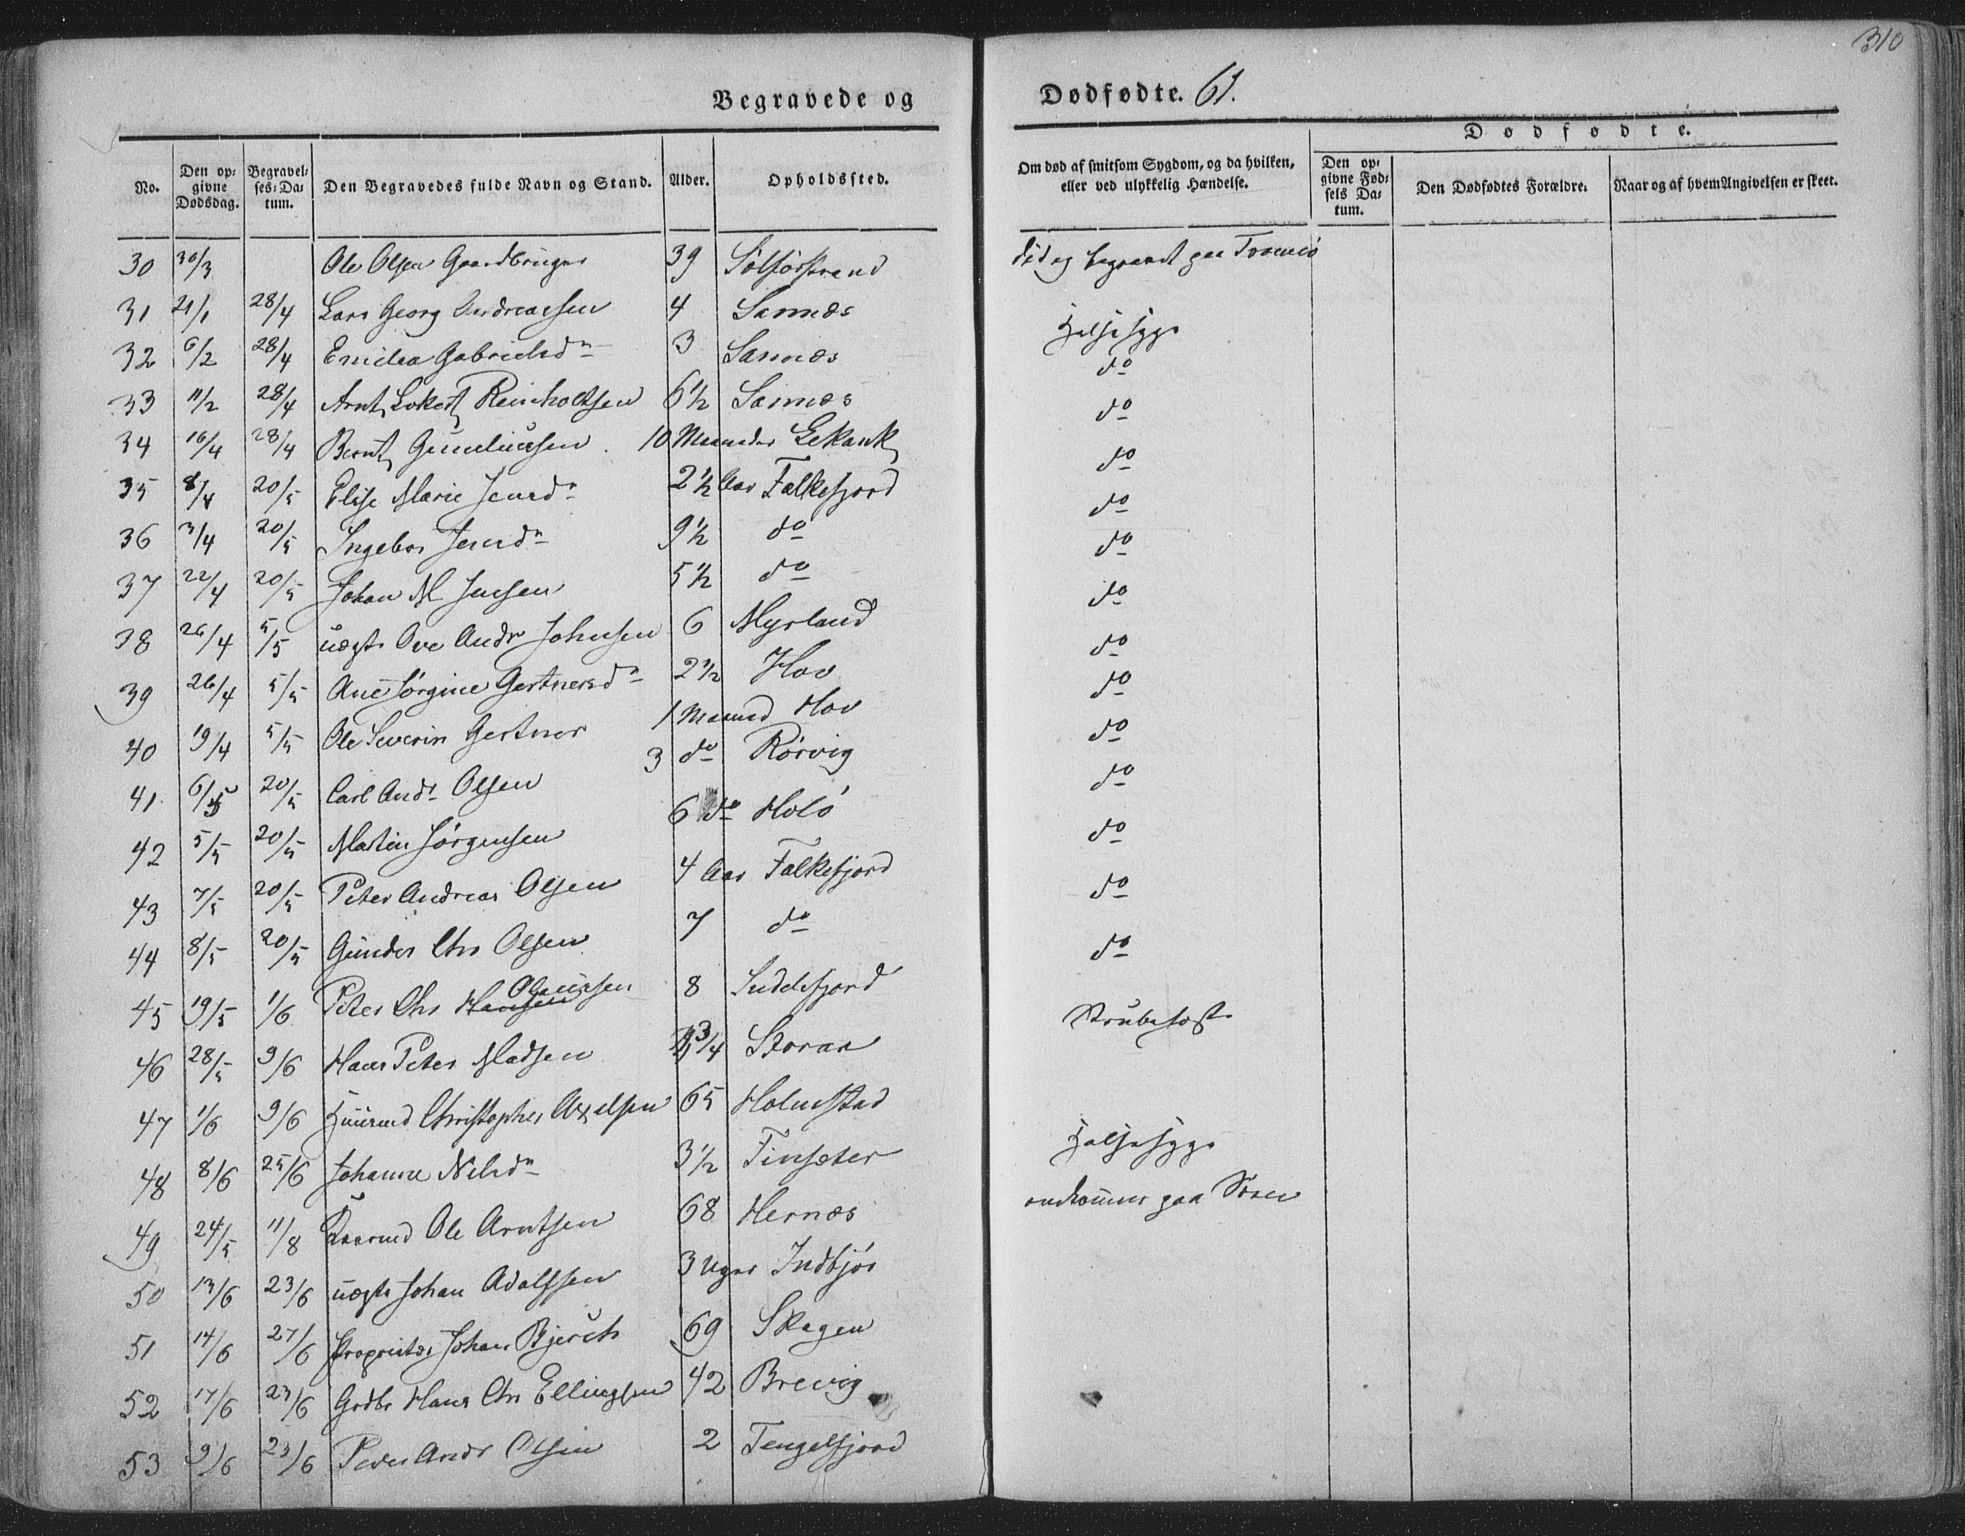 310
Begravede og Dødfødte. 61.
No.
Den op-
givne
Dødsdag.
Begravel-
ses-Da-
tum.
Den Begravedes fulde Navn og Stand.
Alder.
Opholdssted.
Om død af smitsom Sygdom, og da hvilken,
eller ved ulykkelig Hændelse.
Dødfødte.
Den op-
givne Fød-
sels Da-
tum.
Den Dødfødtes Forældre.
Naar og af hvem Angivelsen er skeet.
30 30/3 Ole Olsen Gaardbruger 39 død og begravet paa Tromsø
31 21/1 28/4 Lars Georg Andreassen 4 Sannæs Halssyge
32 6/2 28/4 Emilea Gabrielsdn 3 Sannæs do
33 11/2 28/4 Arnt Reinholtsen 6 1/2 Sannæs do
34 16/4 28/4 Bernt 10 Maaneder do
35 8/4 20/5 Elise Marie Jensdn 2 1/2 Aar Falkefjord do
36 3/4 20/5 Ingebor Jensdn 9 1/2 do do
37 22/4 20/5 Johan M Jensen 5 1/2 do do
38 26/4 5/5 uægte Ove Andr Johnsen 6 Myrland do
39 26/4 5/5 Ane Jørgine Gertnersdn 2 1/2 Hov do
40 19/4 5/5 Ole Severin Gertner 1 Maaned Hov do
41 6/5 20/5 Carl Ands Olsen 3 do Rørvig do
42 5/5 20/5 Martin Jørgensen 6 do Holø do
43 7/5 20/5 Peter Andreas Olsen 4 Aar Falkefjord do
44 8/5 20/5 Gunder Chr Olsen 7 do do
45 19/5 1/6 Peter Chr Hansen Olaussen 8 Strubehoste
46 28/5 9/6 Hans Peter Madsen 3/4
47 1/6 9/6 Huusmd Christopher Axelsen 65 Holmstad
48 8/6 25/6 Johanne Nilsdn 3 1/2 Finsæter Halssyge
49 24/5 11/8 Ole Arntsen 68 Hernæs omkommen paa Søen
50 13/6 23/6 uægte Johan Adolfsen 3 Uger Indbjør
51 14/6 27/6 Proprietær Johan Bjerch 69 Skagen
52 17/6 23/6 Grdbr Hans Chr Ellingsen 42 Brevig
53 9/6 23/6 Peder Andr Olsen 2 Tengelfjord